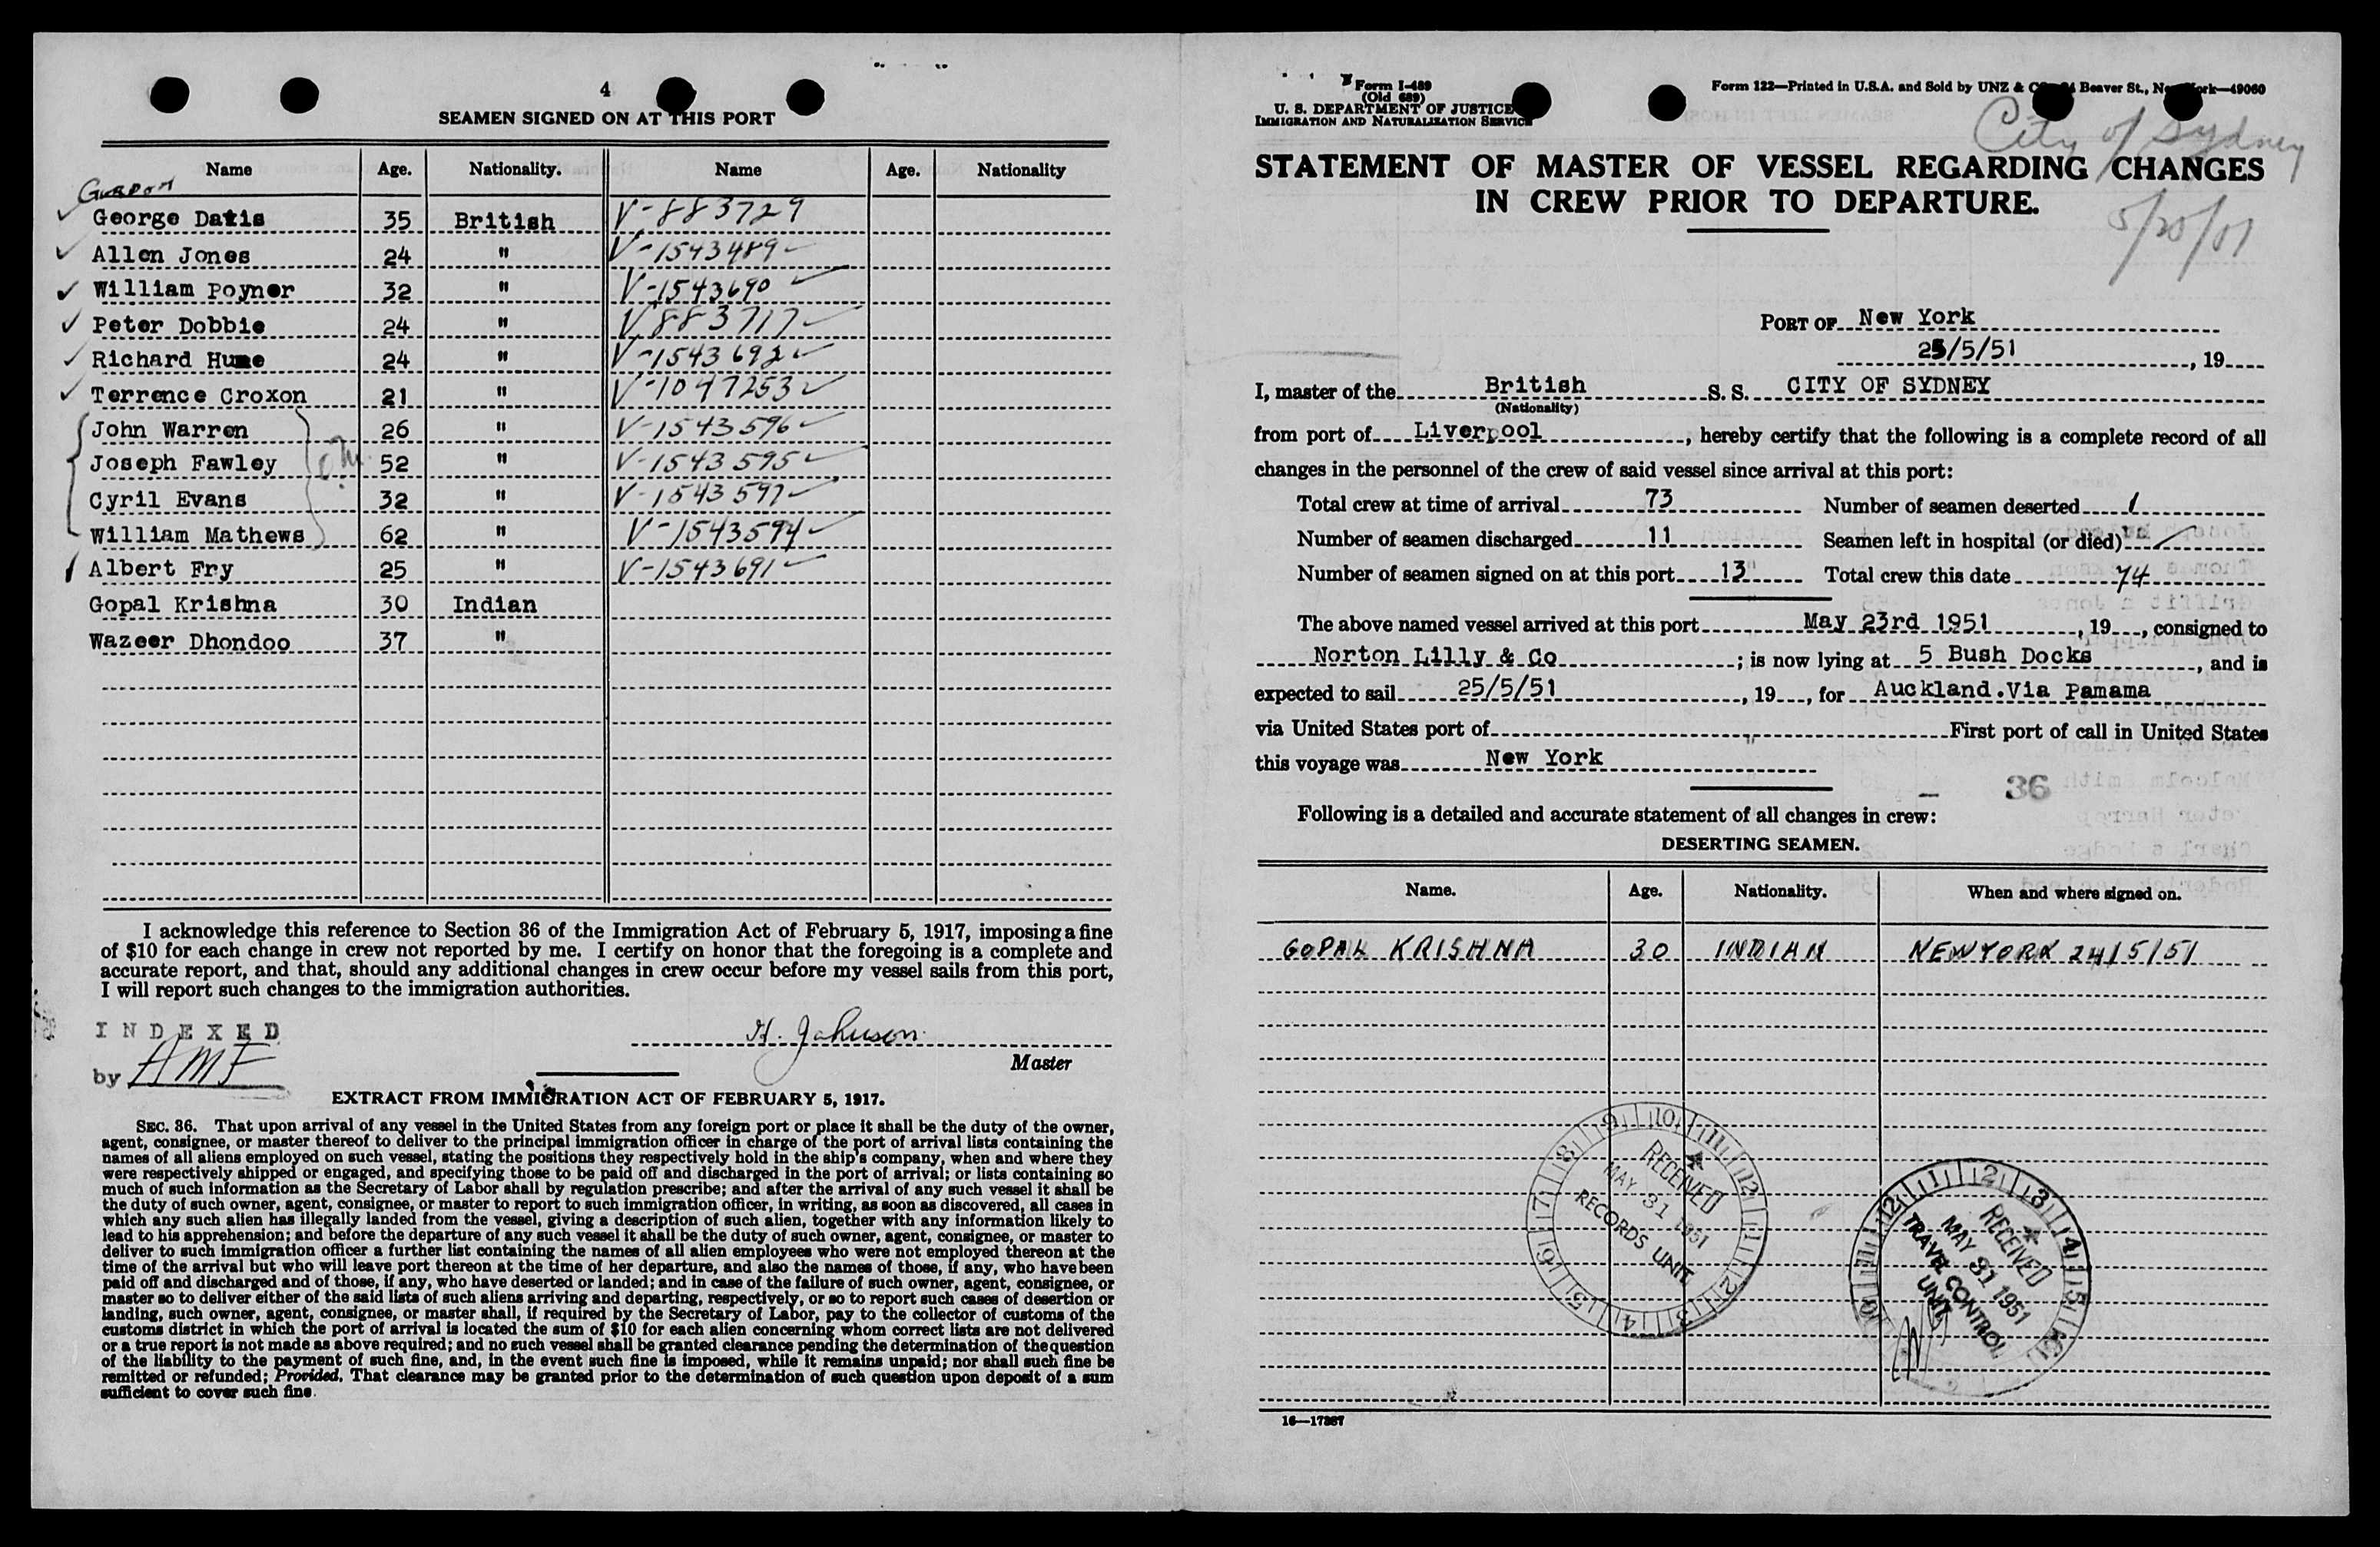 4
SEAMEN SIGNED ON AT THIS PORT
Name Age. Nationality. Name Age. Nationality
George Datis 35 British V-883729
Allen Jones 24 " V-1543489
William Poyner 32 " V-1543690
Peter Dobbie 24 " V883717
Richard Hume 24 " V-1543692
Terrence Croxon 21 " V-1047253
John Warren 26 " V-1543596
Joseph Fawley 52 " V-1543595
Cyril Evans 32 " V-1543597
William Mathews 62 " V-1543594
Albert Fry 25 " V-1543691
Gopal Krishna 30 Indian
Wazeer Dhondoo 37 "
I acknowledge this reference to Section 36 of the Immigration Act of February 5, 1917, imposing a fine
of $10 for each change in crew not reported by me. I certify on honor that the foregoing is a complete and
accurate report, and that, should any additional changes in crew occur before my vessel sails from this port,
I will report such changes to the immigration authorities.
INDEXED
by AMF
H. Johnson
Master
EXTRACT FROM IMMIGRATION ACT OF FEBRUARY 5, 1917.
SEC. 36. That upon arrival of any vessel in the United States from any foreign port or place it shall be the duty of the owner,
agent, consignee, or master thereof to deliver to the principal immigration officer in charge of the port of arrival lists containing the
names of all aliens employed on such vessel, stating the positions they respectively hold in the ship's company, when and where they
were respectively shipped or engaged, and specifying those to be paid off and discharged in the port of arrival; or lists containing so
much of such information as the Secretary of Labor shall by regulation prescribe; and after the arrival of any such vessel it shall be
the duty of such owner, agent, consignee, or master to report to such immigration officer, in writing, as soon as discovered, all cases in
which any such alien has illegally landed from the vessel, giving a description of such alien, together with any information likely to
lead to his apprehension; and before the departure of any such vessel it shall be the duty of such owner, agent, consignee, or master to
deliver to such immigration officer a further list containing the names of all alien employees who were not employed thereon at the
time of the arrival but who will leave port thereon at the time of her departure, and also the names of those, if any, who have been
paid off and discharged and of those, if any, who have deserted or landed; and in case of the failure of such owner, agent, consignee, or
master so to deliver either of the said lists of such aliens arriving and departing, respectively, or so to report such cases of desertion or
landing, such owner, agent, consignee, or master shall, if required by the Secretary of Labor, pay to the collector of customs of the
customs district in which the port of arrival is located the sum of $10 for each alien concerning whom correct lists are not delivered
or a true report is not made as above required; and no such vessel shall be granted clearance pending the determination of the question
of the liability to the payment of such fine, and, in the event such fine is imposed, while it remains unpaid; nor shall such fine be
remitted or refunded; Provided, That clearance may be granted prior to the determination of such question upon deposit of a sum
sufficient to cover such fine.
Form I-489
(Old 689)
U. S. DEPARTMENT OF JUSTICE
IMMIGRATION AND NATURALIZATION SERVICE
Form 122—Printed in U.S.A. and Sold by UNZ & Beaver St., 49060
City of Sydney
STATEMENT OF MASTER OF VESSEL REGARDING CHANGES
IN CREW PRIOR TO DEPARTURE.
PORT OF New York
25/5/51, 19
I, master of the British S. S. CITY OF SYDNEY
(Nationality)
from port of Liverpool, hereby certify that the following is a complete record of all
changes in the personnel of the crew of said vessel since arrival at this port:
Total crew at time of arrival 73 Number of seamen deserted 1
Number of seamen discharged 11 Seamen left in hospital (or died)
Number of seamen signed on at this port 13 Total crew this date 74
The above named vessel arrived at this port May 23rd 1951, 19, consigned to
Norton Lilly & Co; is now lying at 5 Bush Docks, and is
expected to sail 25/5/51, 19, for Auckland.Via Pamama
via United States port of First port of call in United States
this voyage was New York
36
Following is a detailed and accurate statement of all changes in crew:
DESERTING SEAMEN.
Name. Age. Nationality. When and where signed on.
GOPAL KRISHNA 30 INDIAN NEW YORK 24/5/51
RECEIVED
MAY 31 1951
RECORDS UNIT
RECEIVED
MAY 31 1951
TRAVEL CONTROL
UNIT
16—17387